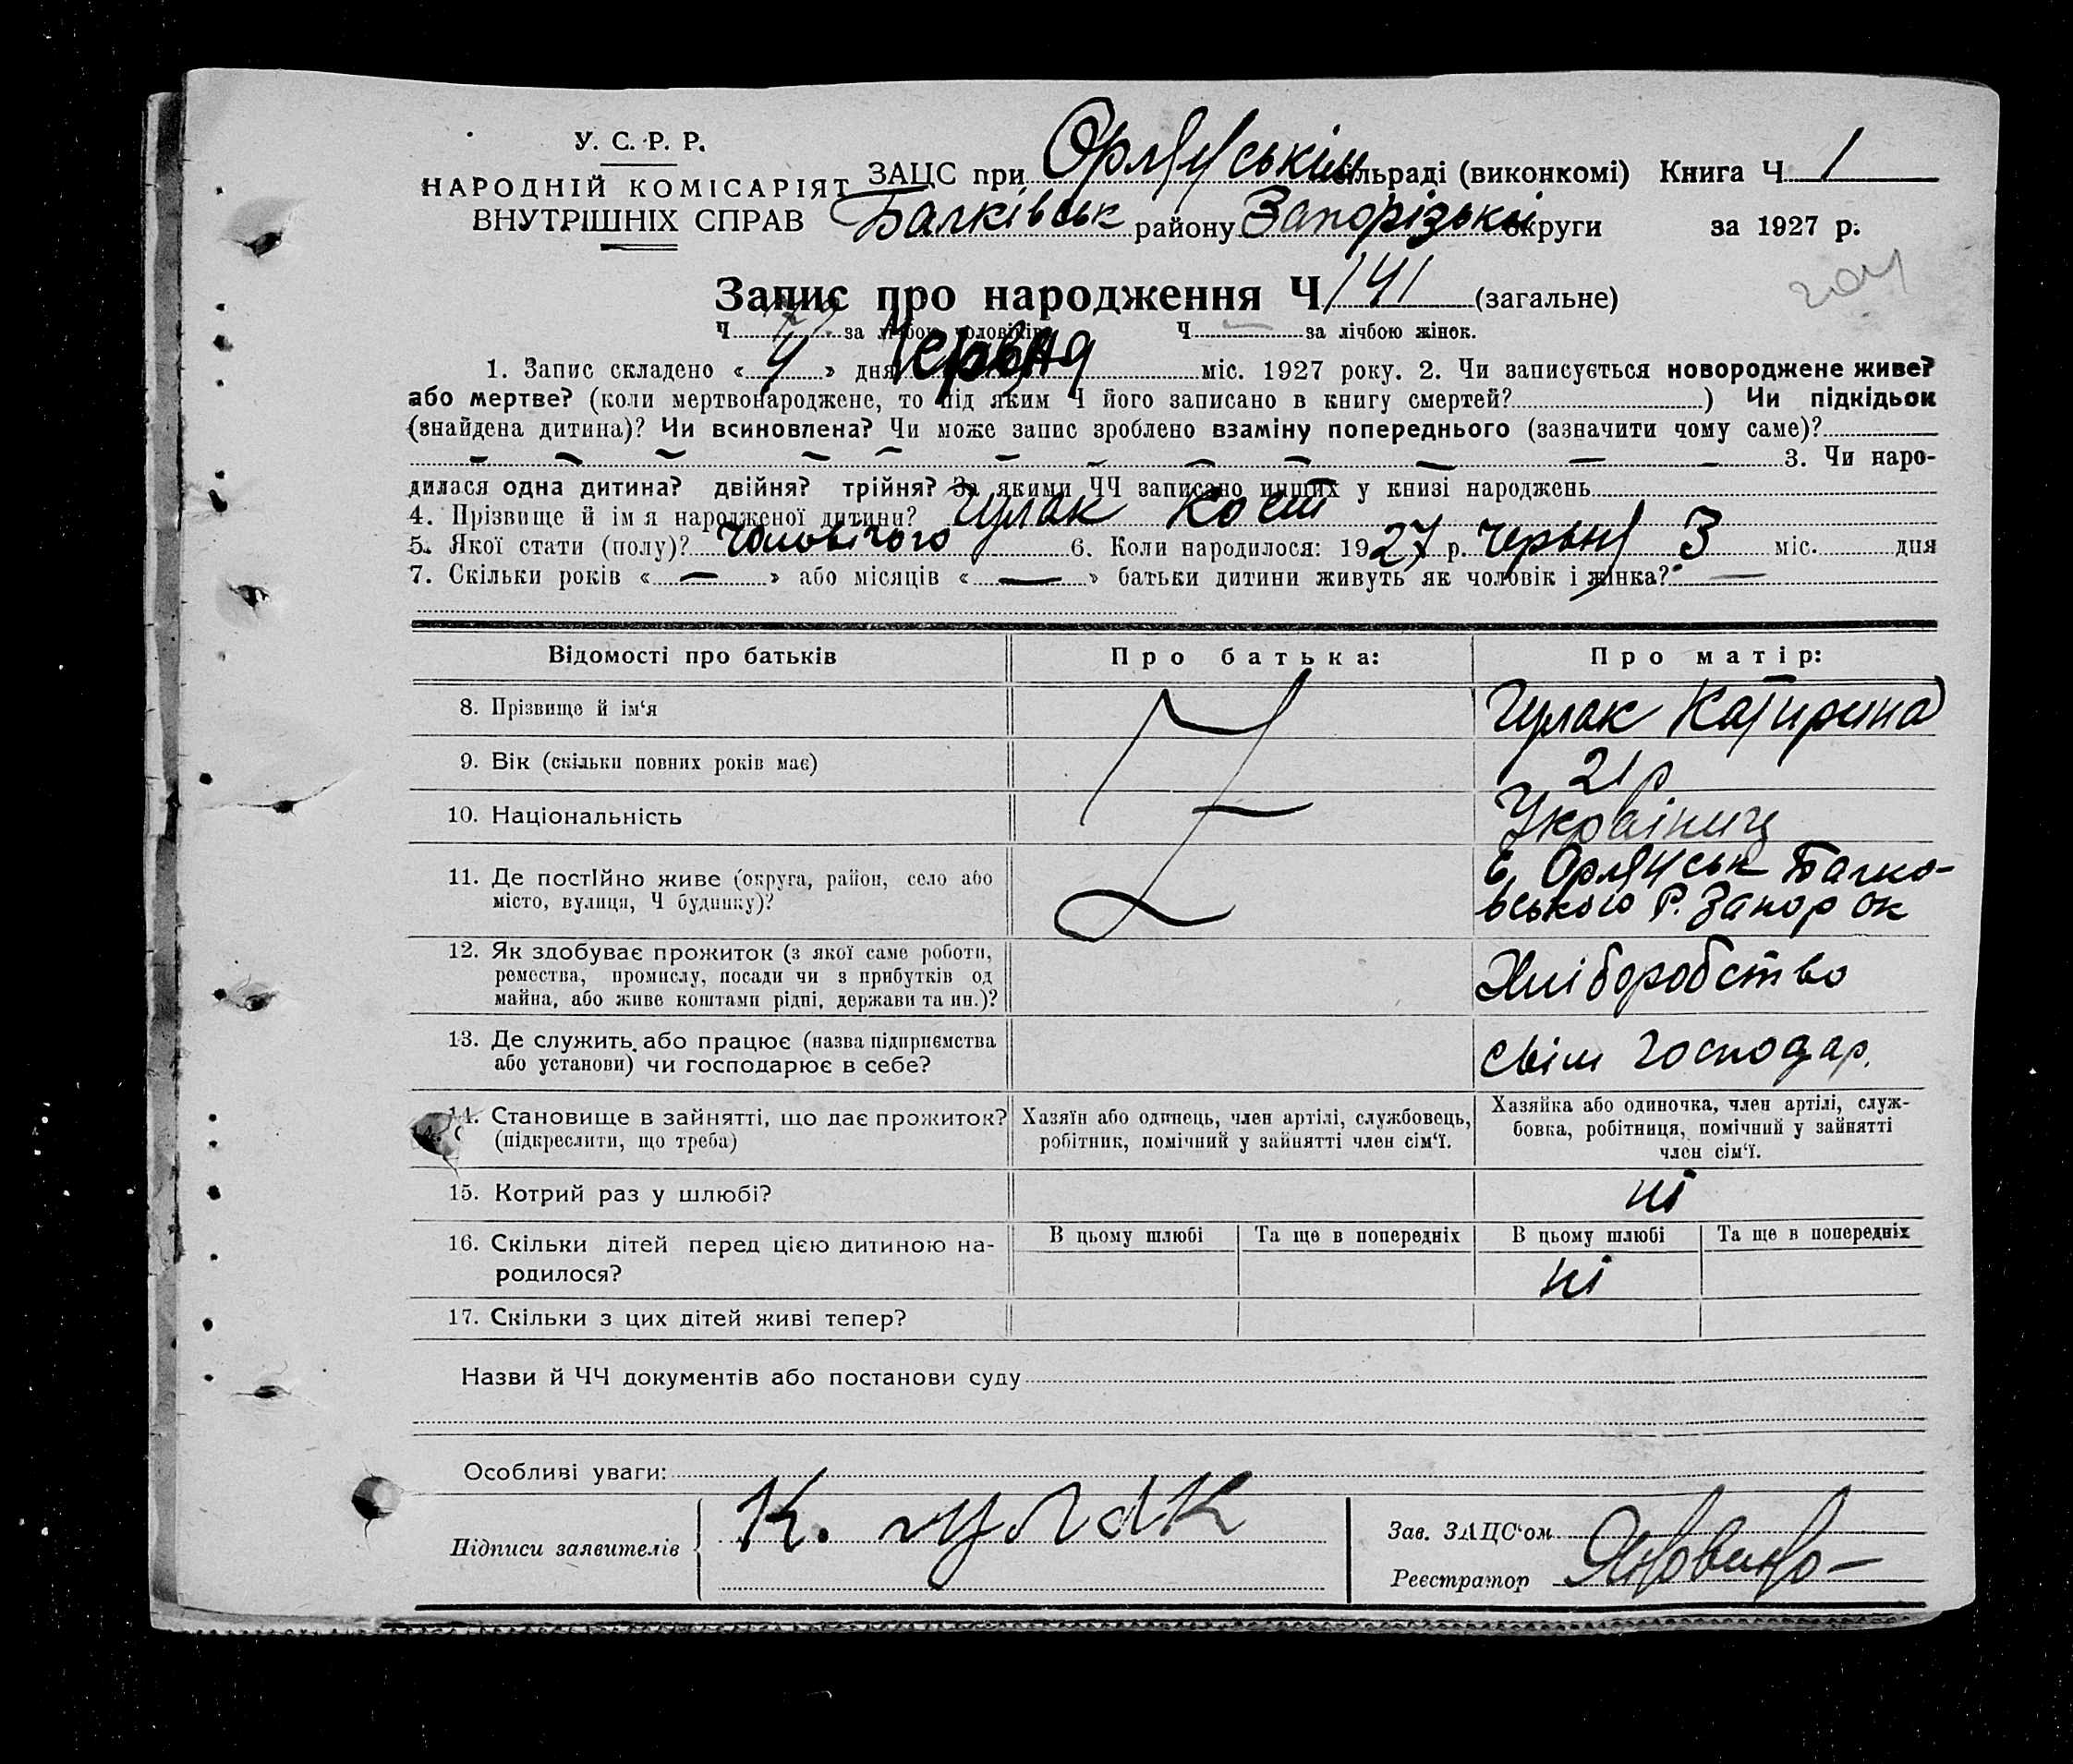 У. С. Р. Р.
НАРОДНІЙ КОМІСАРІЯТ
ВНУТРІШНІХ СПРАВ
ЗАЦС при Орлянськім сільраді (виконкомі) Книга Ч 1
Балківськ району Запорізької округи за 1927 р.
204
Запис про народження Ч 141 (загальне)
Ч за лічбою чоловіків Ч — за лічбою жінок.
1. Запис складено « 4 » дня Червня міс. 1927 року. 2. Чи записується новороджене живе?
або мертве? (коли мертвонароджене, то під яким Ч його записано в книгу смертей? ) Чи підкідьок
(знайдена дитина)? Чи всиновлена? Чи може запис зроблено взаміну попереднього (зазначити чому саме)?
— — — — — — — — — — — — 3. Чи наро-
дилася одна дитина? двійня? трійня? За якими ЧЧ записано инших у книзі народжень
4. Прізвище й імя народженої дитини? Гулак Кост
5. Якої стати (полу)? чоловічого 6. Коли народилося: 1927 р. червня 3 міс. дня
7. Скільки років « — » або місяців « — » батьки дитини живуть як чоловік і жінка? —
Відомості про батьків Про батька: Про матір:
8. Прізвище й ім'я Гулак Катирина
9. Вік (скільки повних років має) 21 р
10. Національність Українка
11. Де постійно живе (округа, район, село або
місто, вулиця, Ч будинку)?
с. Орлянськ Балко-
вського Р. Запор ок
12. Як здобуває прожиток (з якої саме роботи,
ремества, промислу, посади чи з прибутків од
майна, або живе коштами рідні, держави та ин.)?
Хліборобство
13. Де служить або працює (назва підприємства
або установи) чи господарює в себе?
свім господар.
14. Становище в зайнятті, що дає прожиток?
(підкреслити, що треба)
Хазяїн або одинець, член артілі, службовець,
робітник, помічний у зайнятті член сім'ї.
Хазяйка або одиночка, член артілі, служ-
бовка, робітниця, помічний у зайнятті
член сім'ї.
15. Котрий раз у шлюбі? ні
16. Скільки дітей перед цією дитиною на-
родилося?
В цьому шлюбі Та ще в попередніх В цьому шлюбі Та ще в попередніх
ні
17. Скільки з цих дітей живі тепер?
Назви й ЧЧ документів або постанови суду
Особливі уваги:
Підписи заявителів К. Гулак
Зав. ЗАЦС'ом
Реєстратор